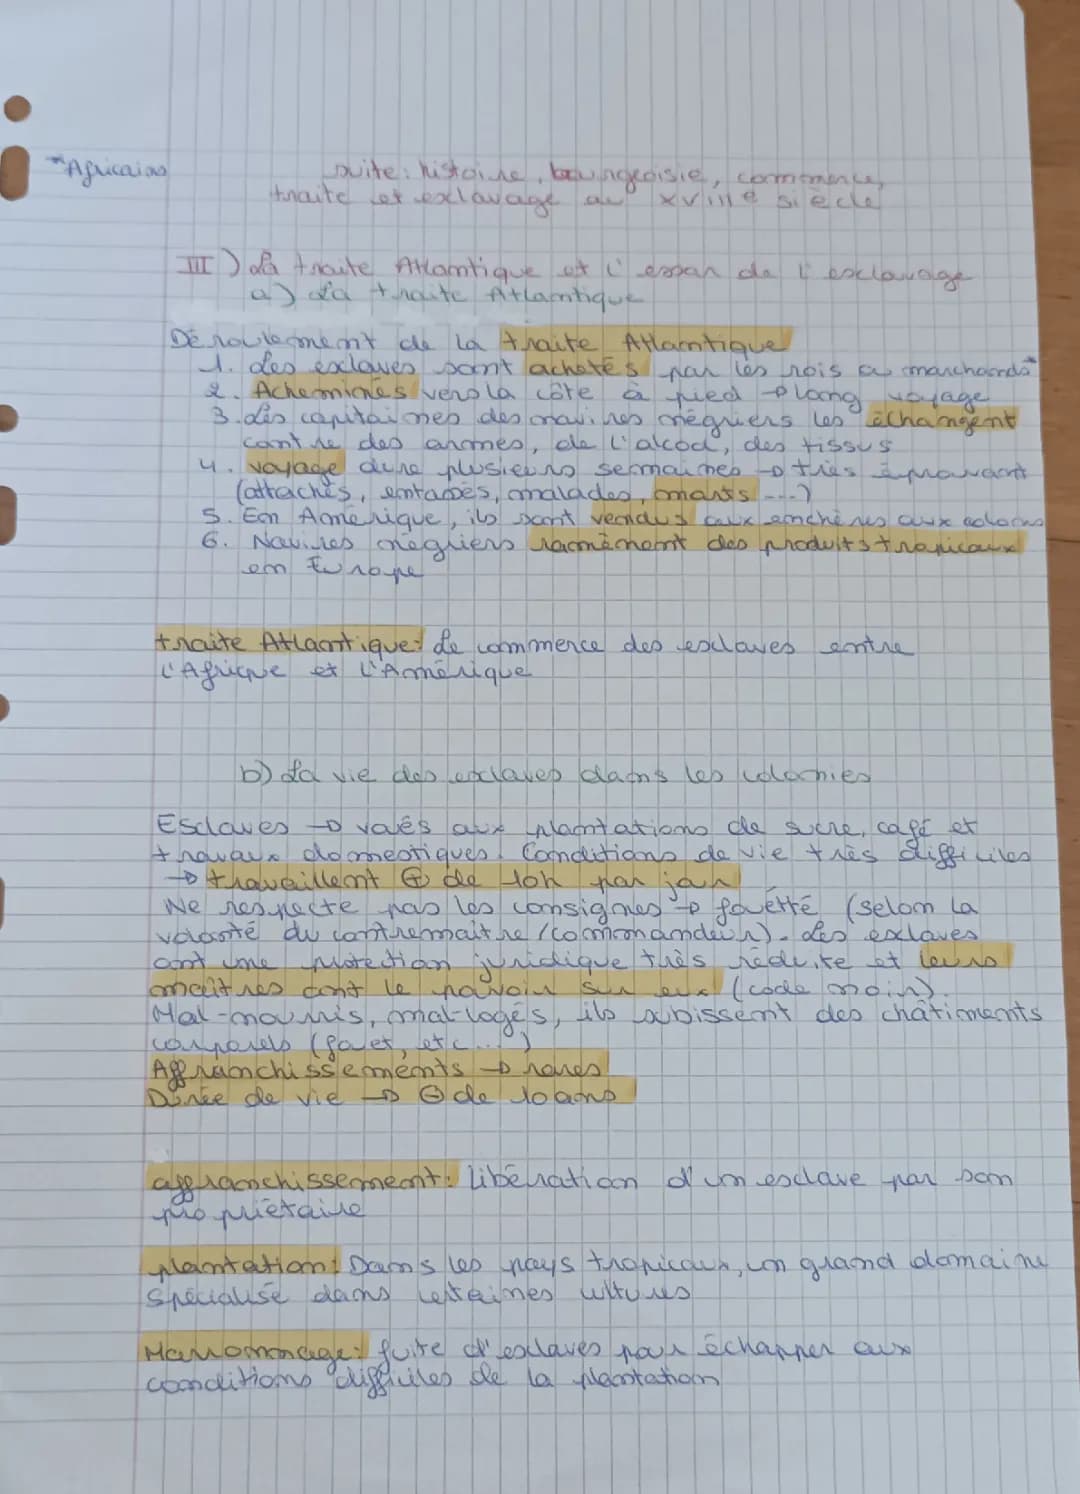 *Africains
suite: histoire, bourgeoisie, commerce,
traite et esclavage au XVIIIe siècle
III) La traite Atlantique et l'essor de l'esclavage
a) La traite Atlantique
Déroulement de la traite Atlantique
1. Les esclaves sont achetés par les rois ou marchands*
2. Acheminés vers la côte à pied → long voyage
3. Les capitaines des navires négriers les échangent
contre des armes, de l'alcool, des tissus
4. voyage dure plusieurs semaines → très éprouvant
(attachés, entassés, malades, morts ...)
5. En Amérique, ils sont vendus aux enchères aux colons
6. Navires négriers ramènent des produits tropicaux
en Europe
traite Atlantique: Le commerce des esclaves entre
l'Afrique et l'Amérique
b) La vie des esclaves dans les colonies
Esclaves → voués aux plantations de sucre, café et
travaux domestiques. Conditions de vie très difficiles
→ travaillent ⊕ de 10h par jour
Ne respecte pas les consignes → fouetté (selon la
volonté du contremaître/commandeur). Les esclaves
ont une protection juridique très réduite et leurs
maîtres ont le pouvoir sur eux (code noir).
Mal-nourris, mal-logés, ils subissent des châtiments
corporels (fouet, etc...)
Affranchissements → rares
Durée de vie → ⊖ de 10 ans
affranchissement: libération d'un esclave par son
propriétaire
plantation: Dans les pays tropicaux, un grand domaine
spécialisé dans certaines cultures
Marronnage: fuite d'esclaves pour échapper aux
conditions difficiles de la plantation